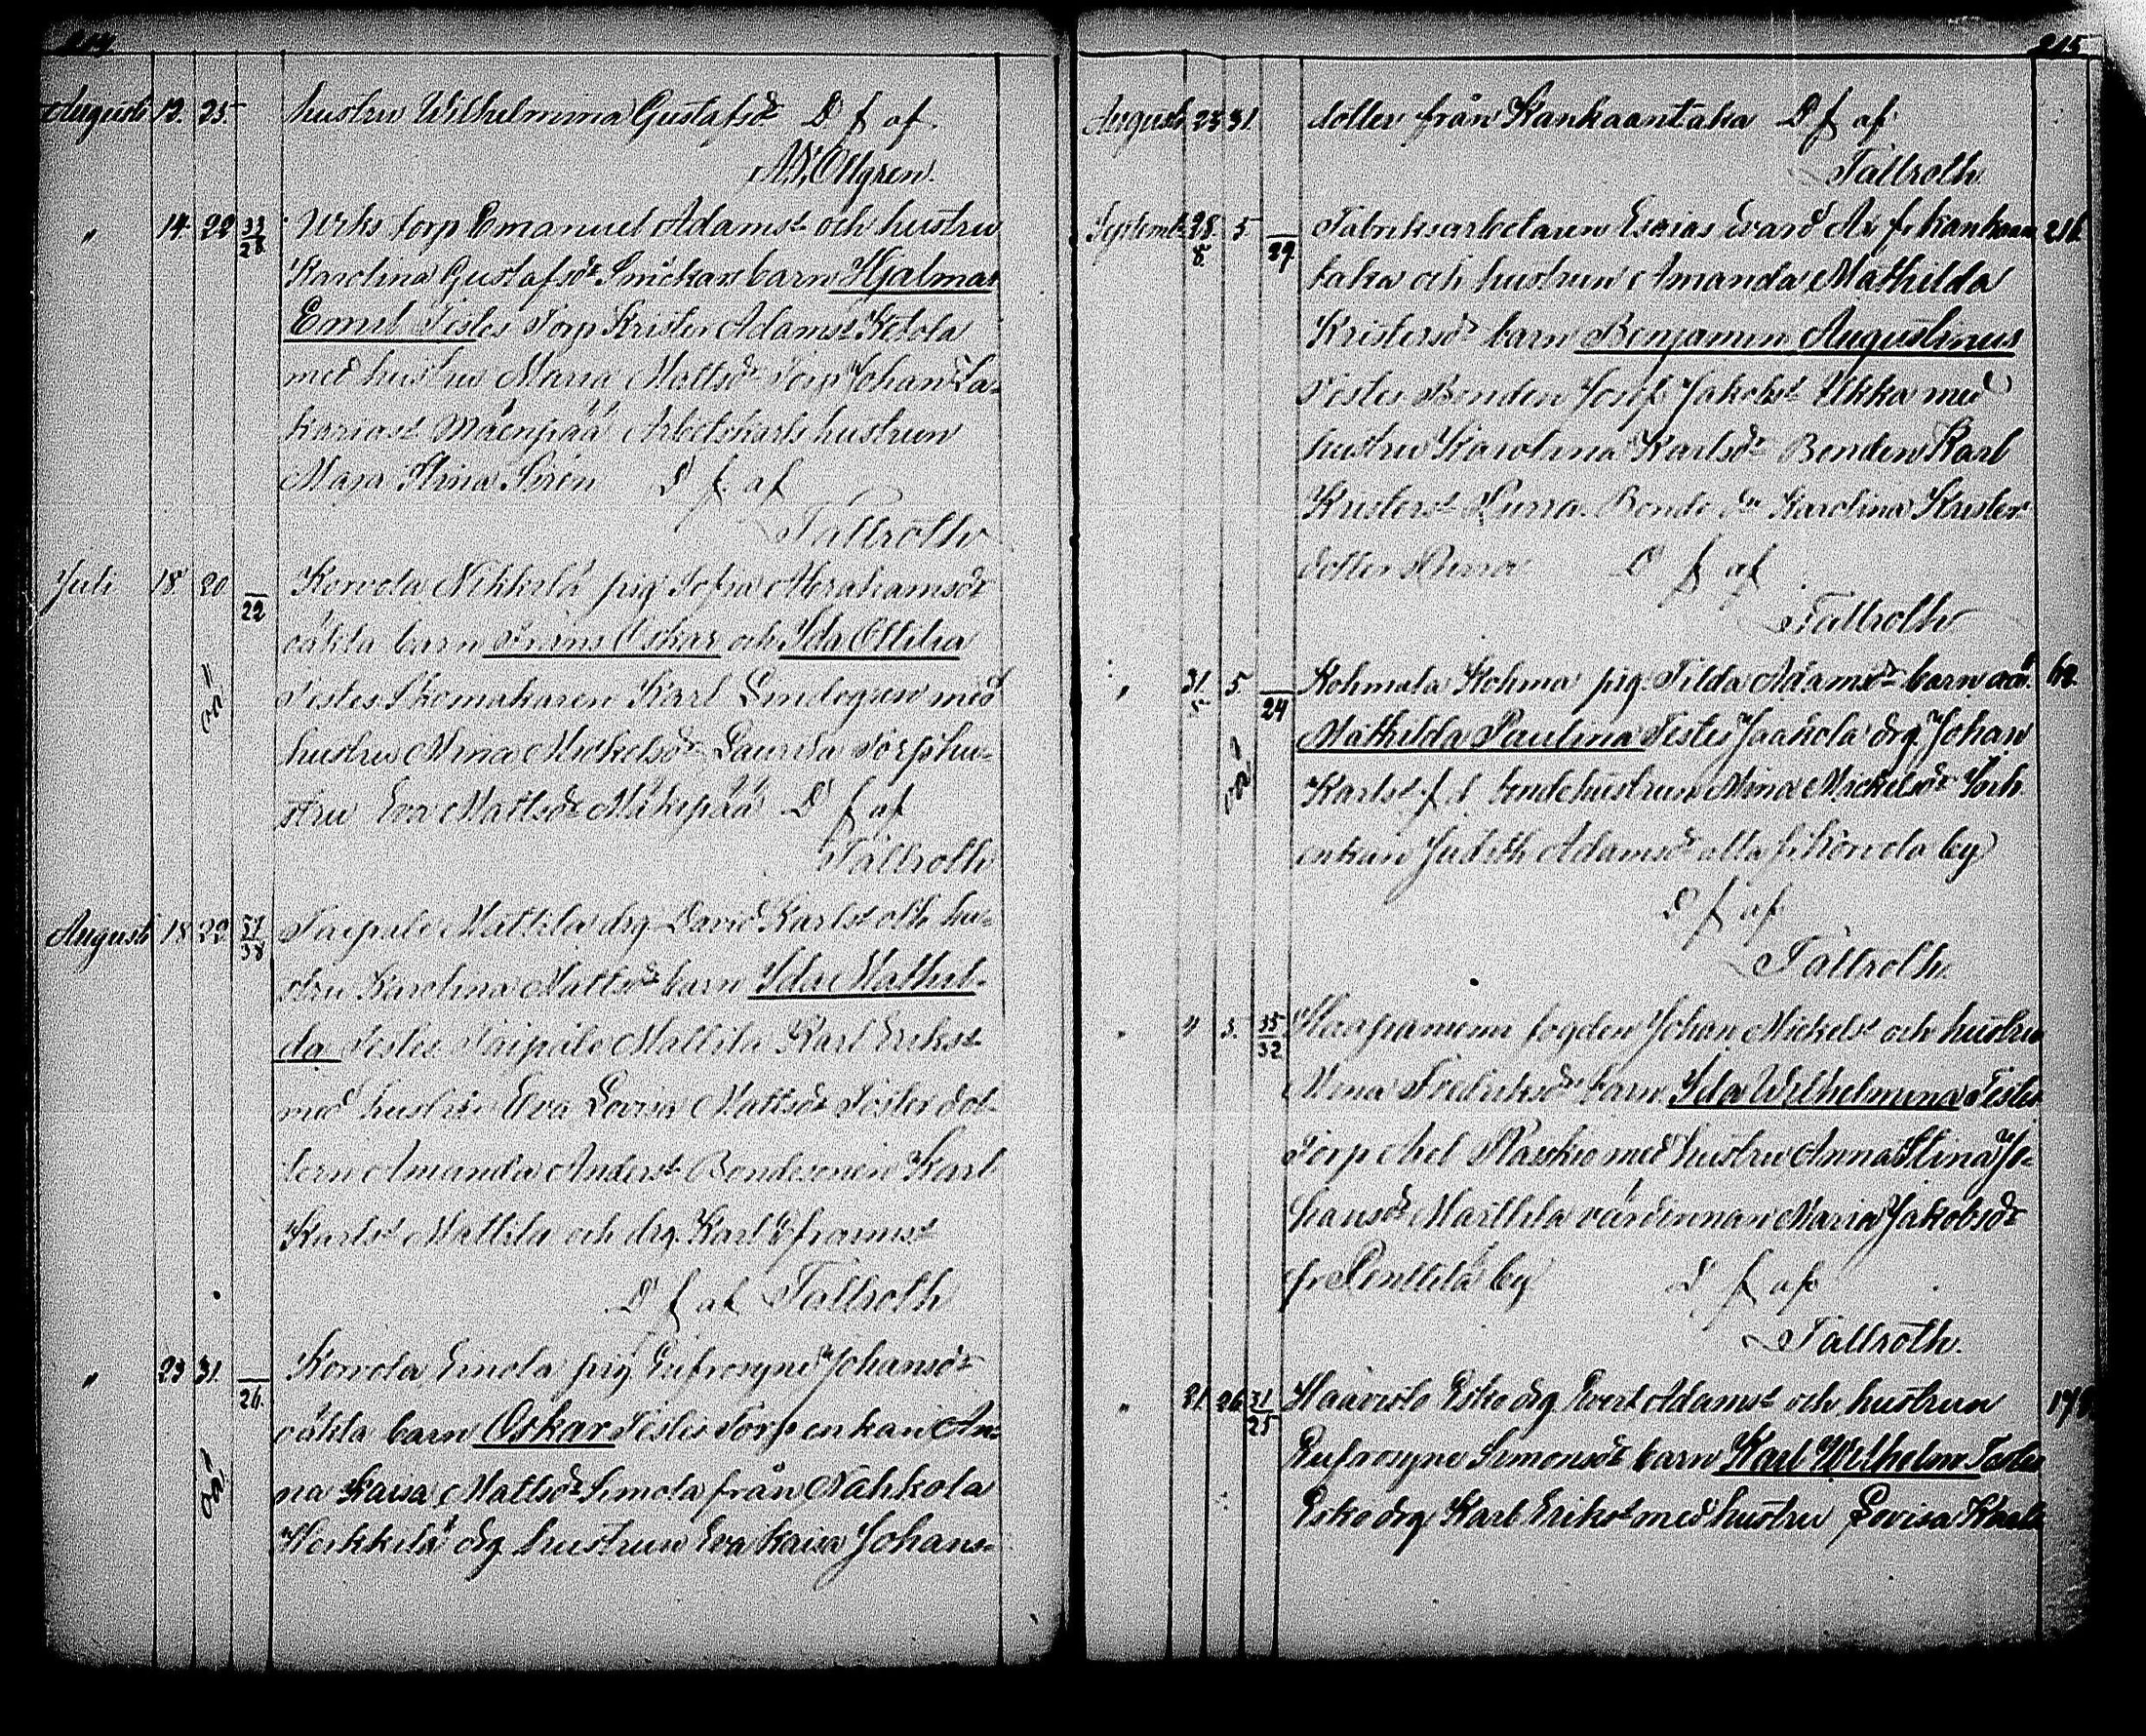 214
Augusti 12. 25. hustru Wilhelmina Gustafsdr D f af.
Ollgren.
" 14. 22 33/28 torp Emanuel Adamss och hustru
Karolina Gustafsdr barn Hjalmar
Emil Testes Torp Krister Adamss Ketola
med hustru Maria Mattsdr Torp Johan Za-
kariass Mäenpää Arbetskarls hustrun
Maja Stina Sirén D f af
Tallroth
Juli 18 20 22 Korvola Nikkilä pig Sofia Abrahamsdr
oäkta barn Frans Oskar och Ida Ottilia
oä
Testes Skomakaren Karl Lindegren med
hustru Mina Mickelsdr Laurila Torphu-
stru Eva Mattsdr Mäkipää D f af
Tallroth
Augusti 18 22 37/38 Taipale Mattila drg David Karlss och hu-
stru Karolina Mattsdr barn Ida Mathil-
da Testes Taipale Mattila Karl Erikss
med hustru Eva Lovisa Mattsdr
Amanda Anders Bondesonen Karl
Karlss Mattila och drg. Karl Eframss
D f af Tallroth
" 23 31. 26. Korvola Einola pig Eufrosyne Johansdr
oäkta barn Oskar Testes Torp enkan An-
oä
na Kaisa Mattsdr Simola från Nahkola
Heikkilä drg hustrun Eva Kaisa Johans-
215
Augusti 23 31. dotter från Kankaantaka D f af
Tallroth
Septemb. 28/8 5 29. Fabriksarbetaren Esaias fr Kankaan 216.
taka och hustrun Amanda Mathilda
Kristersdr barn Benjamin Augustinus
Testes Bonden Josef Jakobss Ukka med
hustru Karolina Karlsdr Bonden Karl
Kristerss Purra Bonde dr Karolina Krister
dotter D f af
Tallroth
" 31/5 5 24 Kohmala Kohma pig. Tilda Adamsdr barn oä. 62.
Mathilda Paulina Testes Jaakola drg. Johan
oä
Karlss f d bondehustrun Mina Mickelsdr
enkan Judith Adamsdr alla fr Korvola by
D f af
Tallroth
" 4 5. 35/32 Haapaniemi fogden Johan Mickelss och hustru
Mina Fredriksdr barn Ida Wilhelmina Testes
Torp Abel med hustru Anna Stina Jo-
hansdr Marttila värdinnan Maria Jakobsdr
fr Penttilä by D f af
Tallroth.
" 21. 26. 31/25 Haavisto Esko drg Evert Adamss och hustrun
Eufrosyne Simonsdr barn Karl Wilhelm Testes
Esko drg Karl Erikss med hustru Lovisa